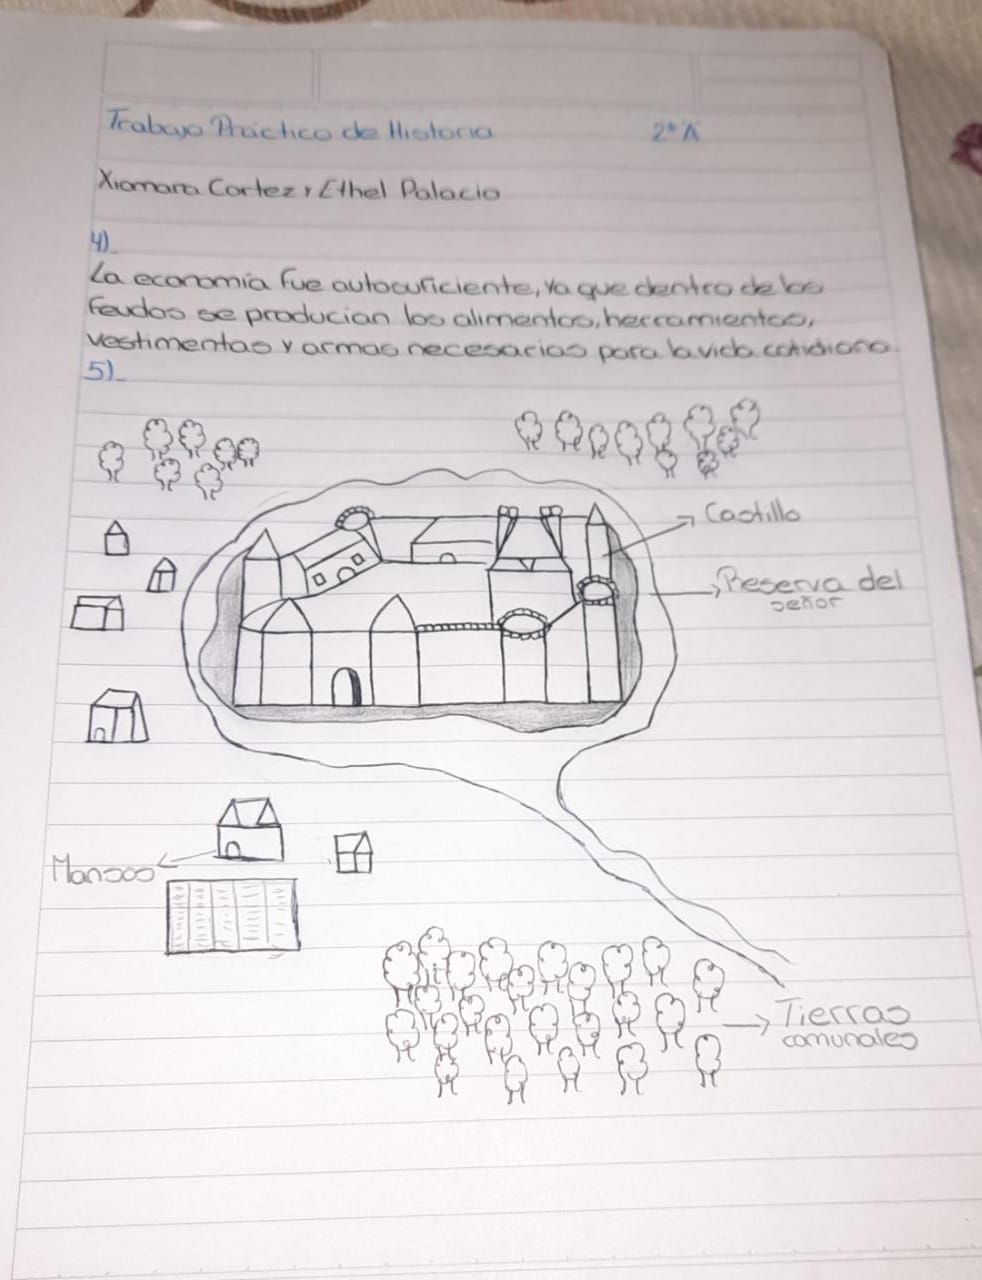 Trabajo Práctico de Historia 2° A
Xiomara Cortez y Ethel Palacio
4)
La economía fue autocuficiente, ya que dentro de los
feudos se producian los alimentos, herramientas,
vestimentas y armas necesarias para la vida cotidiana
5)
Castillo
Reserva del
señor
Mansos
Tierras
comunales